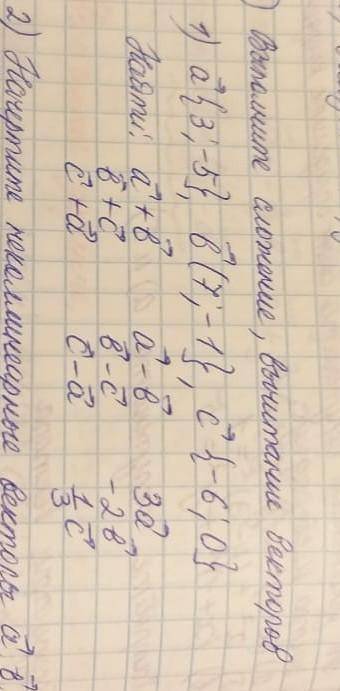 ) Выполните сложение, вычитание векторов
1) a⃗ {3; -5}, b⃗ {7; -1}, c⃗ {-6; 0}
Найти: a⃗ + b⃗ a⃗ - b⃗ 3a⃗
b⃗ + c⃗ b⃗ - c⃗ -2b⃗
c⃗ + a⃗ c⃗ - a⃗ 1/3 c⃗
2) Начертите неколлинеарные векторы a⃗, b⃗